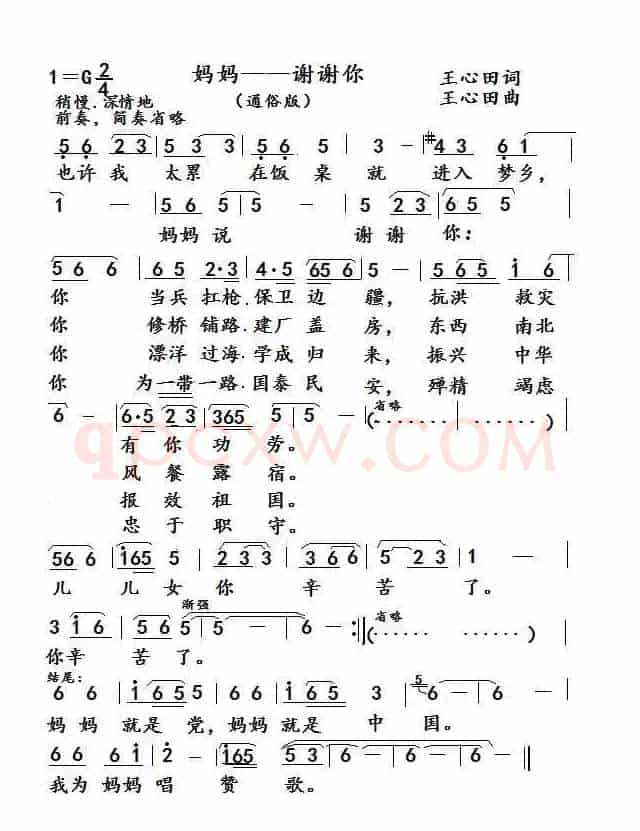 1=G 2/4 妈妈——谢谢你 王心田词
稍慢.深情地 (通俗版) 王心田曲
前奏，简奏省略
5 6 2 3 | 5 3 3 | 5 6 5 | 3 - | #4 3 6 1 |
也许我 太累 在饭桌就 进入梦乡，
1 - | 5 6 5 | 5 - | 5 2 3 | 6 5 5 |
妈妈说 谢谢你：
5 6 6 | 6 5 2·3 | 4·5 65 6 | 5 - | 5 6 5 i 6 |
你 当兵扛枪.保卫边疆，抗洪救灾
你 修桥铺路.建厂盖房，东西南北
你 漂洋过海.学成归来，振兴中华
你 为一带一路.国泰民安，殚精竭虑
6 - | 6·5 2 3 | 365 5 | 5 - | 省略 (······ | ······)
有你功劳。
风餐露宿。
报效祖国。
忠于职守。
qpcxw.com
56 6 | i65 5 | 2 3 3 | 3 6 6 | 5 2 3 | 1 - |
儿儿女你辛苦了。
渐强 省略
3 i 6 | 5 6 5 | 5 - | 6 - :| (······ | ······)
你辛苦了。
结尾：
6 6 | i 6 5 | 6 6 6 | i 6 5 | 3 | 5 6 - |
妈妈就是党，妈妈就是中国。
6 6 | 6 i | 2 - | i65 | 5 3 | 6 - | 6 - | 6 - ‖
我为妈妈唱赞歌。